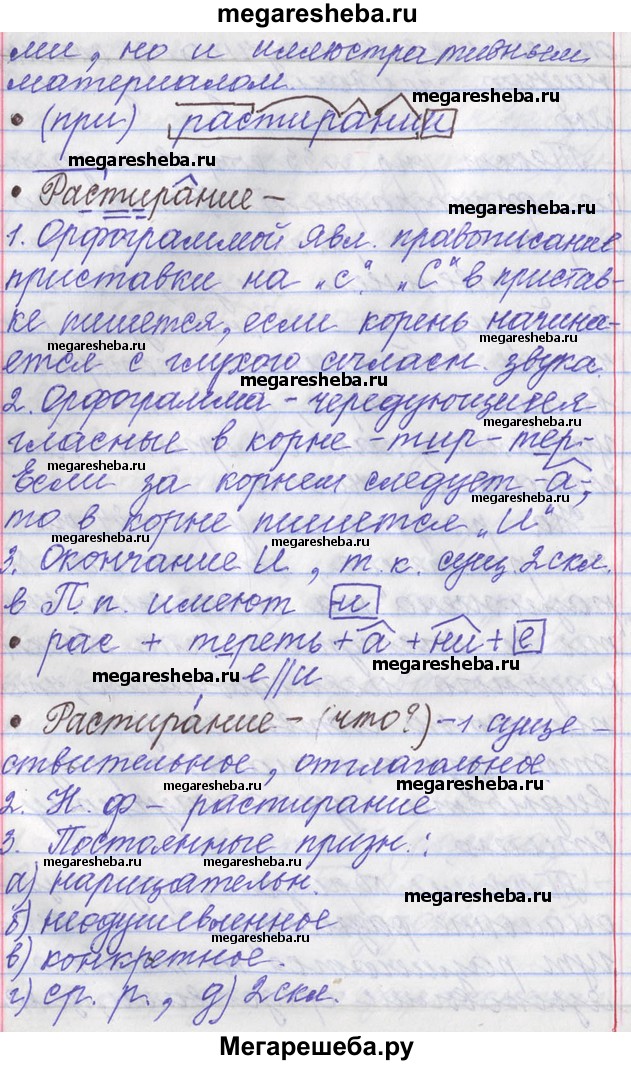 megaresheba.ru
ми, но и иллюстративным
материалом.
megaresheba.ru
• (при) растирании
megaresheba.ru
• Растирание –
megaresheba.ru
1. Орфограммой явл. правописание
приставки на „с“. „С“ в пристав-
ке пишется, если корень начина-
megaresheba.ru
ется с глухого согласн. звука.
megaresheba.ru
megaresheba.ru
2. Орфограмма – чередующиеся
гласные в корне -тир-тер-
megaresheba.ru
Если за корнем следует -а-,
megaresheba.ru
то в корне пишется „И“
megaresheba.ru
3. Окончание И, т.к. сущ. 2 скл.
в П.п. имеют и
• рас + тереть + а + ни + е
megaresheba.ru
megaresheba.ru
е//и
• Растирание – (что?) – 1. суще-
ствительное, отглагольное
megaresheba.ru
megaresheba.ru
2. Н. ф – растирание
3. Постоянные призн.:
megaresheba.ru
а) нарицательн.
megaresheba.ru
б) неодушевленное
megaresheba.ru
в) конкретное.
г) ср. р., д) 2 скл.
Мегарешеба.ру